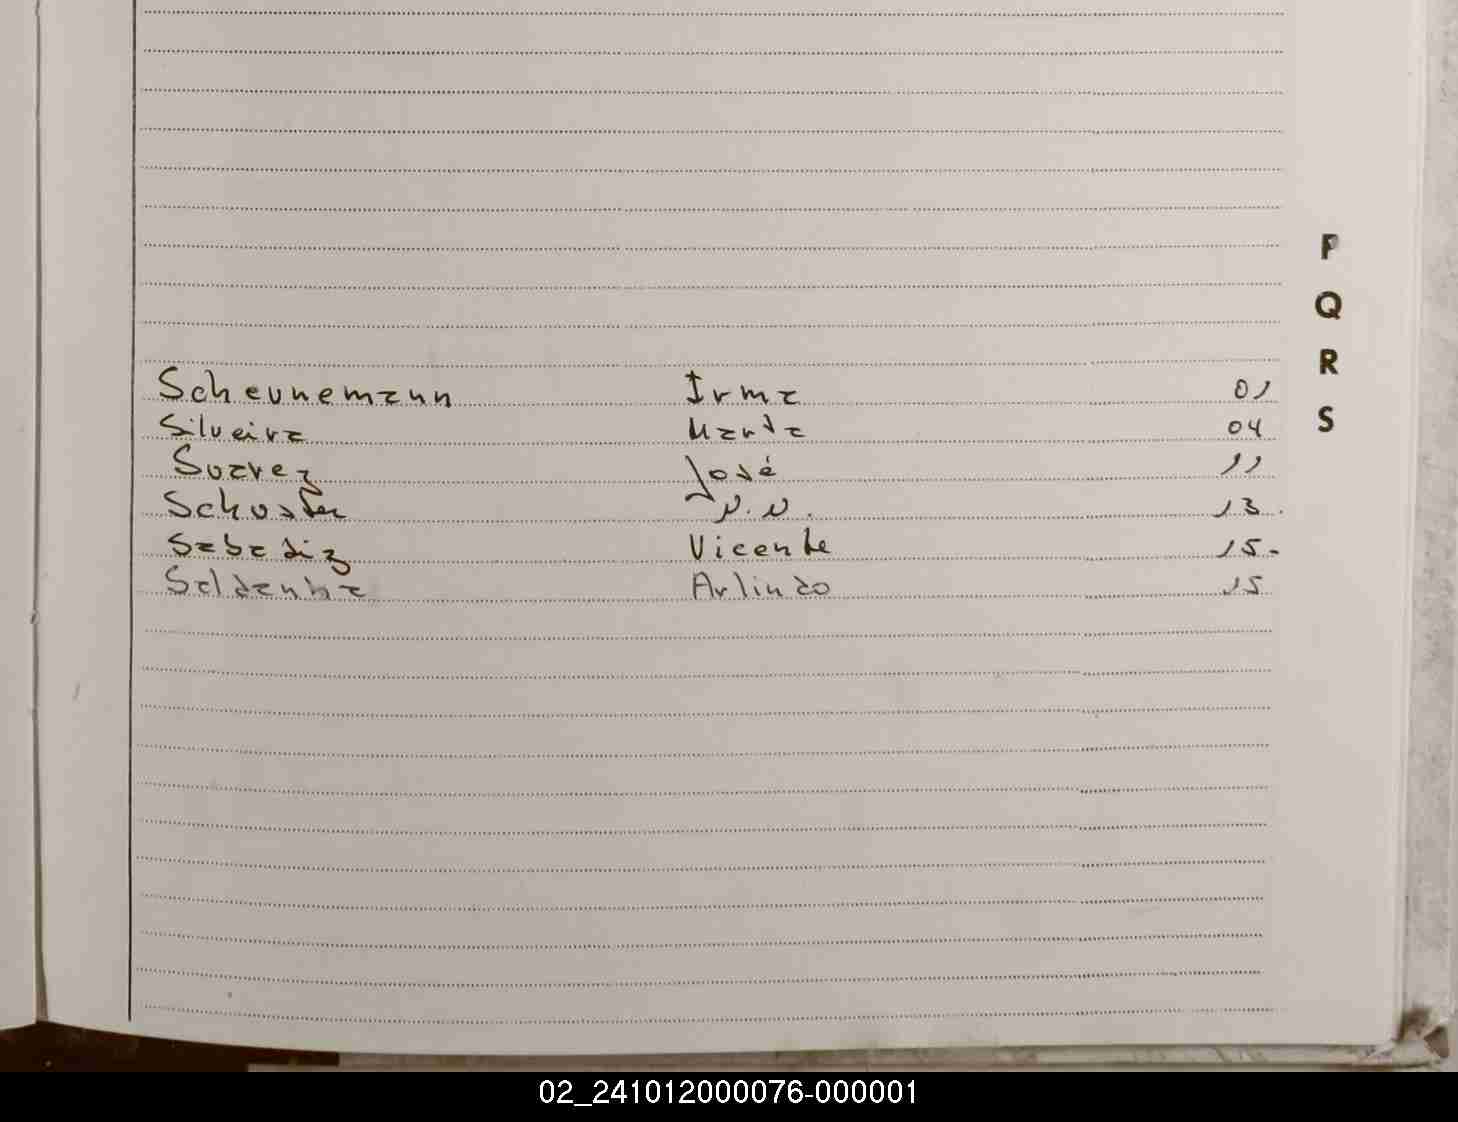 P
Q
R
Scheunemann Irma 01
S
Silveira Marta 04
Suarez José 11
Schuster N.N. 13.
Sabadiz Vicente 15.
Saldanha Arlindo 15
02_241012000076-000001